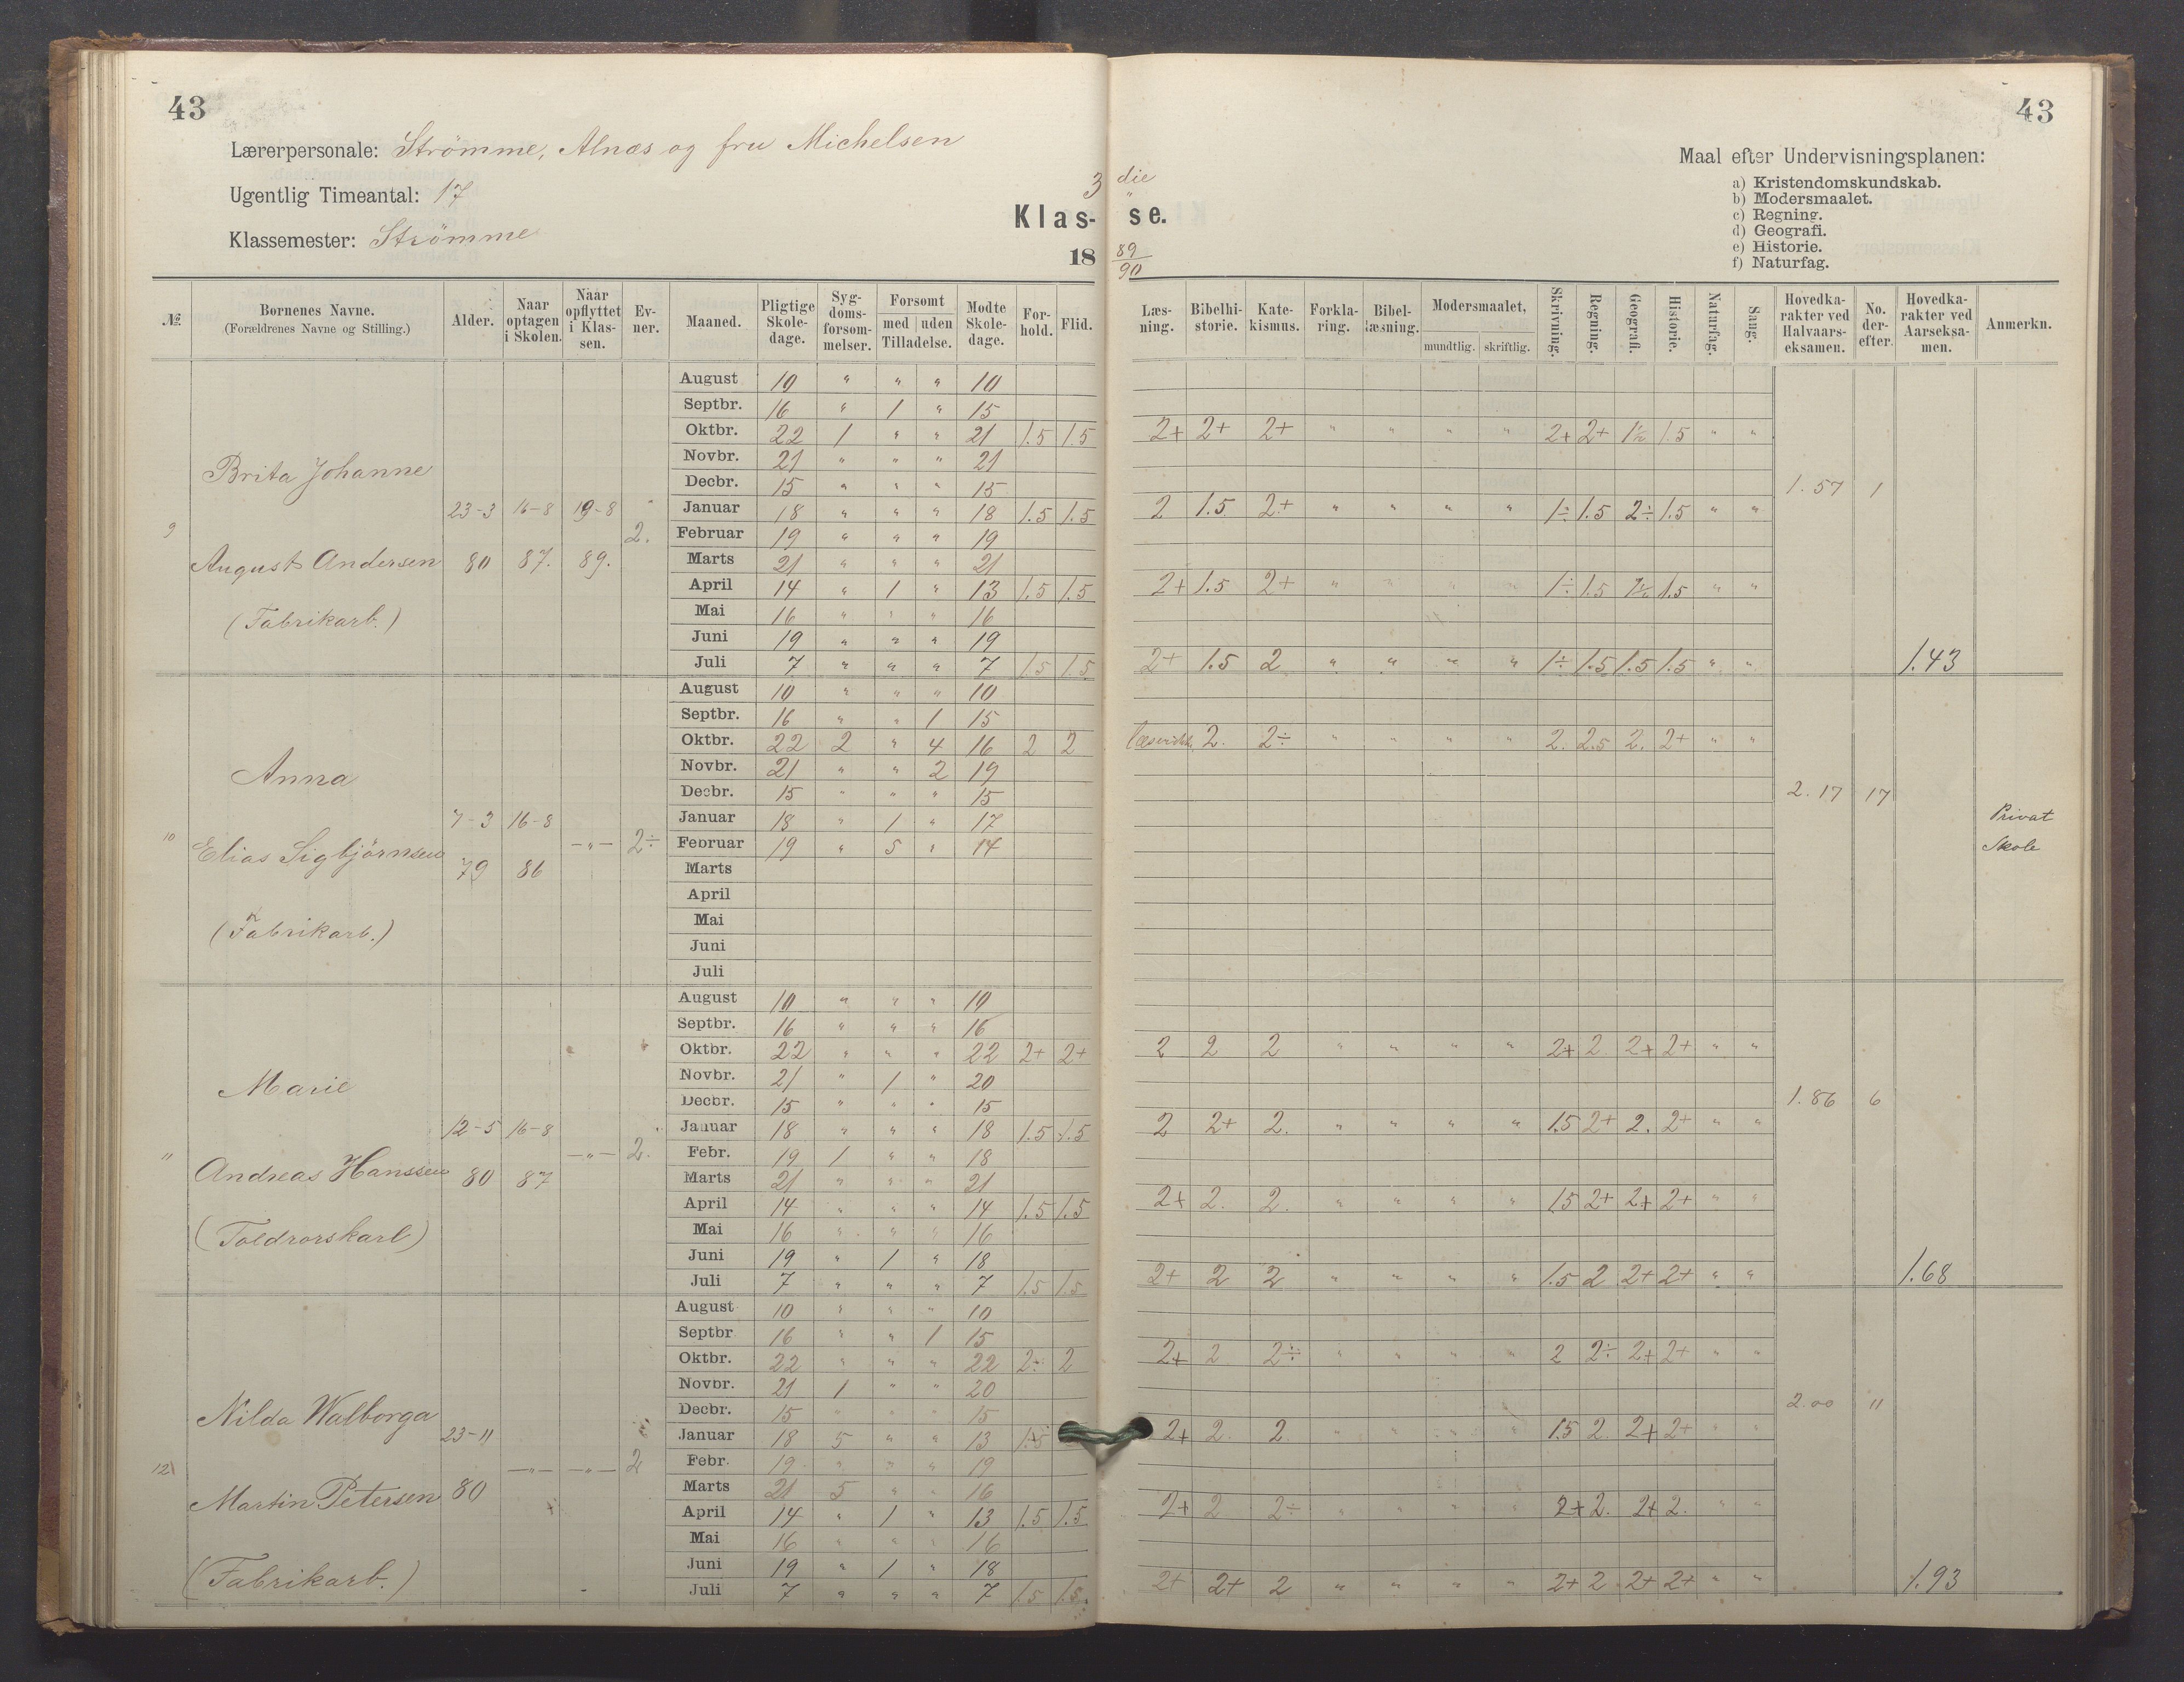 43
43
Lærerpersonale: Strömme, Alnæs og fru Michelsen
Ugentlig Timeantal: 17
Klassemester: Strömme
3 die
Klas- se.
18 89/90
Maal efter Undervisningsplanen:
a) Kristendomskundskab.
b) Modersmaalet.
c) Regning.
d) Geografi.
e) Historie.
f) Naturfag.
№ Børnenes Navne. (Forældrenes Navne og Stilling.) Alder. Naar optagen i Skolen. Naar opflyttet i Klassen. Evner. Maaned. Pligtige Skoledage. Sygdomsforsømmelser. Forsømt med uden Tilladelse. Mødte Skoledage. Forhold. Flid. Læsning. Bibelhistorie. Katekismus. Forklaring. Bibellæsning. Modersmaalet, mundtlig. skriftlig. Skrivning. Regning. Geografi. Historie. Naturfag. Sang. Hovedkarakter ved Halvaarseksamen. No. derefter. Hovedkarakter ved Aarseksamen. Anmerkn.
9 Brita Johanne
August Andersen
(Fabrikarb.)
23-3 80 16-8 87. 19-8 89. 2.
August 10 " " " 10
Septbr. 16 " 1 " 15
Oktbr. 22 1 " " 21 1.5 1.5 2+ 2+ 2+ " " " " 2+ 2+ 1½ 1.5 " "
Novbr. 21 " " " 21
Decbr. 15 " " " 15 1.57 1
Januar 18 " " " 18 1.5 1.5 2 1.5 2+ " " " " 1÷ 1.5 2÷ 1.5 " "
Februar 19 " " " 19
Marts 21 " " " 21
April 14 " 1 " 13 1.5 1.5 2+ 1.5 2+ " " " " 1÷ 1.5 1½ 1.5 " "
Mai 16 " " " 16
Juni 19 " " " 19
Juli 7 " " " 7 1.5 1.5 2+ 1.5 2 " " " " 1÷ 1.5 1.5 1.5 " " 1.43
10 Anna
Elias Sigbjörnsen
(Fabrikarb.)
7-3 79 16-8 86 -"- 2÷
August 10 " " " 10
Septbr. 16 " " 1 15
Oktbr. 22 2 " 4 16 2 2 2. 2÷ " " " " 2. 2.5 2. 2+ " "
Novbr. 21 " " 2 19
Decbr. 15 " " " 15 2.17 17
Januar 18 " 1 " 17
Februar 19 " 5 " 14
Privat
Skole
Marts
April
Mai
Juni
Juli
11 Marie
Andreas Hanssen
(Toldrorskarl)
12-5 80 16-8 87 -"- 2.
August 10 " " " 10
Septbr. 16 " " " 16
Oktbr. 22 " " " 22 2+ 2+ 2 2 2 " " " " 2+ 2. 2+ 2+ " "
Novbr. 21 " 1 " 20
Decbr. 15 " " " 15 1.86 6
Januar 18 " " " 18 1.5 1.5 2 2+ 2. " " " " 1.5 2+ 2. 2+ " "
Febr. 19 1 " " 18
Marts 21 " " " 21
April 14 " " " 14 1.5 1.5 2+ 2. 2. " " " " 1.5 2+ 2+ 2+ " "
Mai 16 " " " 16
Juni 19 " 1 " 18
Juli 7 " " " 7 1.5 1.5 2+ 2 2 " " " " 1.5 2 2+ 2+ " " 1.68
12 Nilda Walborga
Martin Petersen
(Fabrikarb.)
23-11 80 -"- -"- 2
August 10 " " " 10
Septbr 16 " " 1 15
Oktbr. 22 " " " 22 2÷ 2 2+ 2 2÷ " " " " 2 2÷ 2+ 2+ " "
Novbr. 21 1 " " 20
Decbr. 15 " " " 15 2.00 11
Januar 18 5 " " 13 1.5 2+ 2. 2 " " " " 1.5 2. 2+ 2+ " "
Febr. 19 " " " 19
Marts 21 5 " " 16
April 14 " 1 " 13 1.5 1.5 2+ 2 2÷ " " " " 2+ 2. 2+ 2. " "
Mai 16 " " " 16
Juni 19 " 1 " 18
Juli 7 " " " 7 1.5 1.5. 2+ 2+ 2 " " " " 2+ 2 2+ 2+ " " 1.93